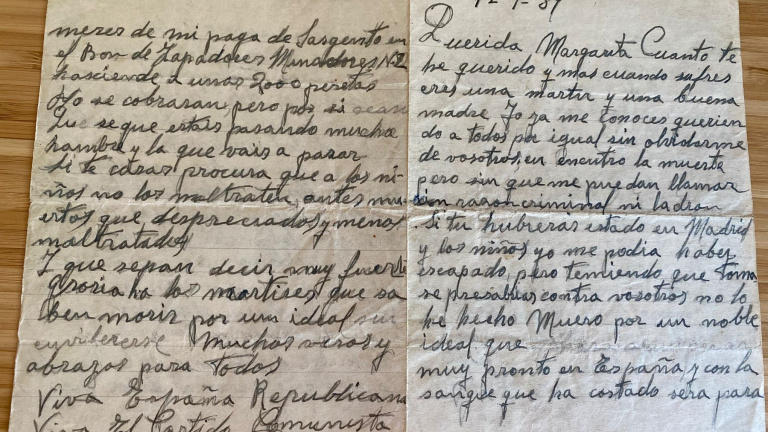 Querida Margarita Cuanto te
he querido y mas cuando sufres
eres una martir y una buena
madre Yo ya me conoces querien
do a todos por igual sin olvidarme
de vosotros, en encutro la muerte
pero sin que me puedan llamar
sin razon criminal ni ladron
Si tu hubieras estado en Madrid
y los niños yo me podia haber
escapado, pero temiendo que toma
se presalias contra vosotros no lo
he hecho Muero por un noble
ideal que
muy pronto en España y con la
sangre que ha costado sera para
mezes de mi paga de Sargento en
el Bon de Zapadores Minadores Nº2
hasciende a unas 2000 pesetas
No se cobraran pero por si acaso
Que se que estais pasando mucha
hambre y la que vais a pasar
Si te casas procura que a los ni-
ños no los maltraten, antes mu-
ertos que despreciados y menos
maltratados
Y que sepan decir muy fuerte
gloria a los martires que sa
ben morir por um ideal sin
envilecerse Muchos vesos y
abrazos para todos
Viva España Republicana
Viva El Partido Comunista